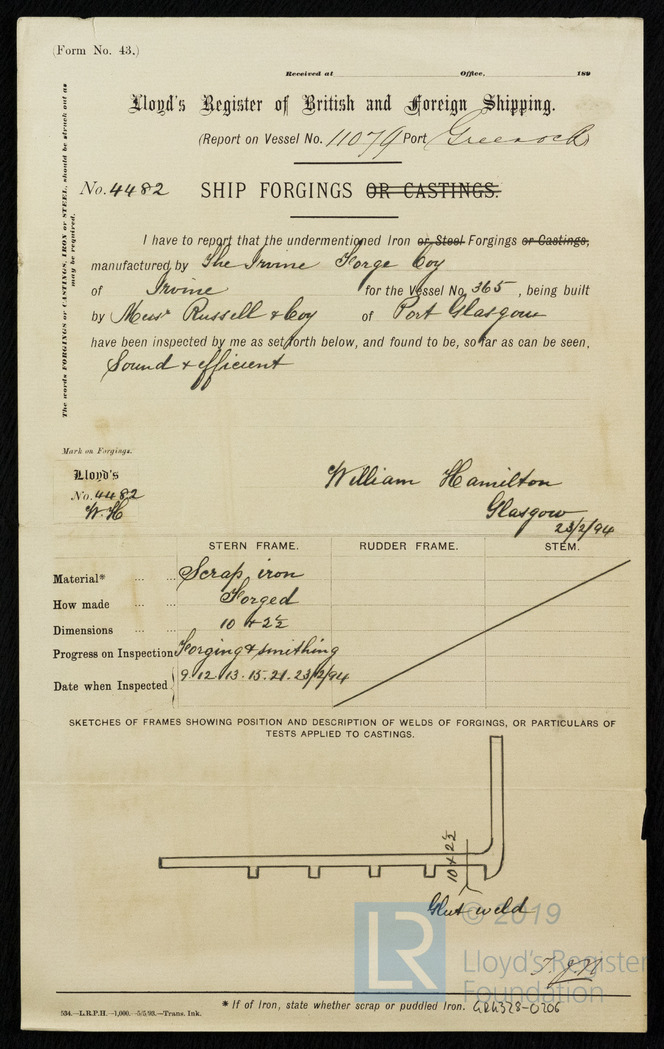 (Form No. 43.)
Received at Office, 189
Lloyd's Register of British and Foreign Shipping.
(Report on Vessel No. 11079 Port Greenock)
No. 4482 SHIP FORGINGS OR CASTINGS.
The words FORGINGS or CASTINGS, IRON or STEEL, should be struck out as may be required.
I have to report that the undermentioned Iron or Steel Forgings or Castings,
manufactured by The Irvine Forge Coy
of Irvine for the Vessel No. 365, being built
by Messrs Russell & Coy of Port Glasgow
have been inspected by me as set forth below, and found to be, so far as can be seen,
Sound & efficient
Mark on Forgings.
Lloyd's
No. 4482
W.H
William Hamilton
Glasgow
23/2/94
STERN FRAME. RUDDER FRAME. STEM.
Material* ... ... Scrap iron
How made ... ... Forged
Dimensions ... ... 10 × 2½
Progress on Inspection Forging & smithing
Date when Inspected 9. 12. 13. 15. 21. 23/2/94
SKETCHES OF FRAMES SHOWING POSITION AND DESCRIPTION OF WELDS OF FORGINGS, OR PARTICULARS OF
TESTS APPLIED TO CASTINGS.
10 × 2½
Glut weld
LR © 2019
Lloyd's Register
Foundation
* If of Iron, state whether scrap or puddled Iron. GRK328-0206
534.—L.R.P.H.—1,000.—5/5/93.—Trans. Ink.